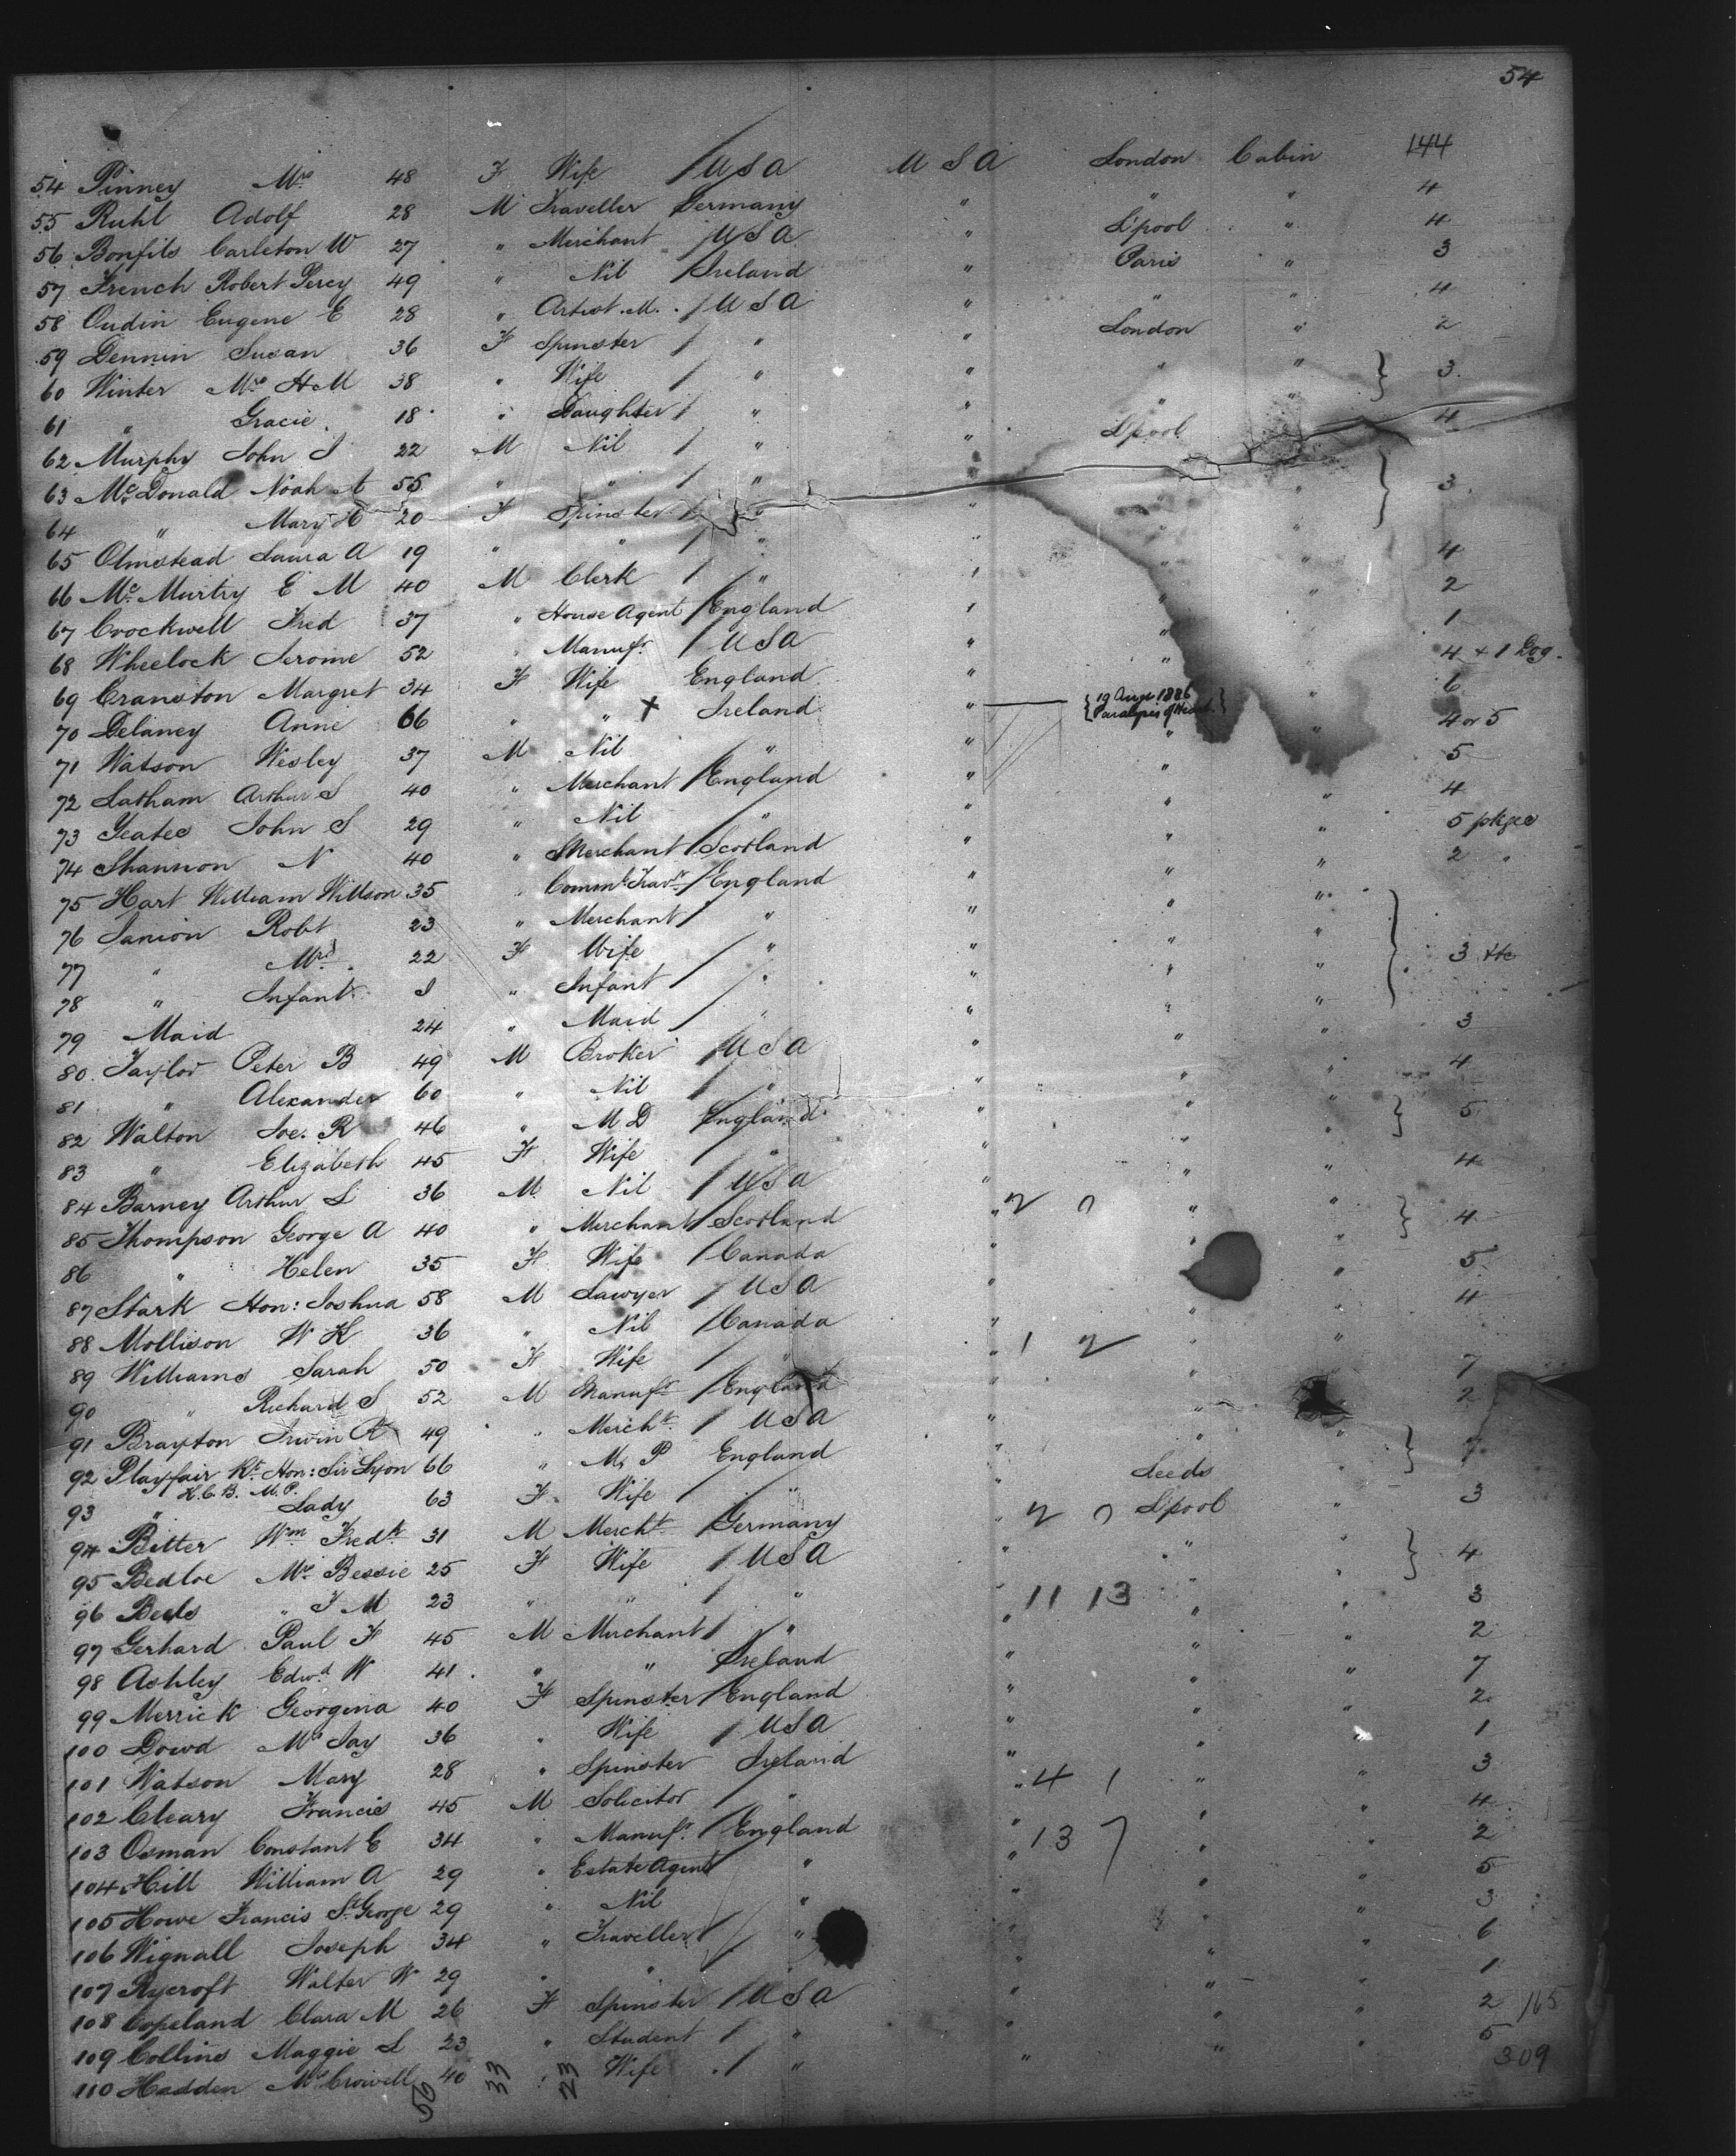 54
144
54 Pinney Mrs 48 F Wife / U S A U S A London Cabin
55 Ruhl Adolf 28 M Traveller Germany " " " 4
56 Bonfils Carleton W 27 " Merchant / U S A " L'pool " 4
57 French Robert Percy 49 " Nil / Ireland " Paris " 3
58 Oudin Eugene E 28 " Artist M. / U S A " " " 4
59 Dennin Susan 36 F Spinster / " " London " 2
60 Winter Mrs H M 38 " Wife / " " " " } 3
61 " Gracie 18 " Daughter / " " " "
62 Murphy John J 22 M Nil / " " L'pool 4
63 McDonald Noah A 55 " " / " " " " } 3
64 " Mary H 20 F Spinster / " " " "
65 Olmstead Laura A 19 " " / " " " 4
66 McMurtry E M 40 M Clerk / " " " 2
67 Crockwell Fred 37 " House Agent / England " " " 1
68 Wheelock Jerome 52 " Manufr / U S A " " 4 + 1 Dog.
69 Cranston Margret 34 F Wife England " " " 6
70 Delaney Anne 66 " " X Ireland " { 19 Augt 1886 Paralysis of Heart } 4 or 5
71 Watson Wesley 37 M Nil " " " " 5
72 Latham Arthur S 40 " Merchant / England " " 4
73 Yeates John S 29 " Nil / " " " " 5 pkges
74 Shannon N 40 " Merchant / Scotland " " " 2 "
75 Hart William Willson 35 " Comml Travr / England " "
76 Janion Robt 23 " Merchant / " " " "
77 " Mrs 22 F Wife / " " " " } 3 etc
78 " Infant " Infant / " " " "
79 Maid 24 " Maid / " " " " 3
80 Taylor Peter B 49 M Broker / U S A " " " 4
81 " Alexander 60 " Nil / " " " "
82 Walton Joe. R 46 " M D England " " " } 5
83 " Elizabeth 45 F Wife / " " " "
84 Barney Arthur L 36 M Nil / U S A " " " 4
85 Thompson George A 40 " Merchant / Scotland " " " } 4
86 " Helen 35 F Wife / Canada " " "
87 Stark Hon: Joshua 58 M Lawyer / U S A " 5
88 Mollison W K 36 " Nil / Canada " " 4
89 Williams Sarah 50 F Wife / " " 1 2 " "
90 " Richard S 52 M Manufr / England " " 7
91 Brayton Irwin R 49 " Mercht / U S A " " 2
92 Playfair Rt. Hon: Sir Lyon 66 " M. P England " " " } 7
K.C.B. M.P.
93 " Lady 63 F Wife / " " Leeds "
94 Bitter Wm Fredk 31 M Mercht Germany " L'pool " 3
95 Bedloe Mrs Bessie 25 F Wife / U S A " " } 4
96 Beels " J M 23 " " / " " " "
97 Gerhard Paul F 45 M Merchant / " " 11 13 " " 3
98 Ashley Edwd W 41 " " Ireland " " " 2
99 Merrick Georgina 40 F Spinster / England " " " 7
100 Dowd Mrs Jay 36 " Wife / U S A " " " 2
101 Watson Mary 28 " Spinster Ireland " " 1
102 Cleary Francis 45 M Solicitor / " " 4 1 " " 3
103 Osman Constant E 34 " Manufr / England " " " 4
104 Hill William A 29 " Estate Agent " " 13 7 " " 2
105 Howe Francis St. George 29 " Nil " " " 5
106 Wignall Joseph 34 " Traveller / " " " 3
107 Rycroft Walter W 29 " " / " " " 6
108 Copeland Clara M 26 F Spinster / U S A " " " 1
109 Collins Maggie L 23 " Student / " " " " 2 165
110 Hadden Mrs Crowell 40 " Wife / " " " " 5
309
56 33 23